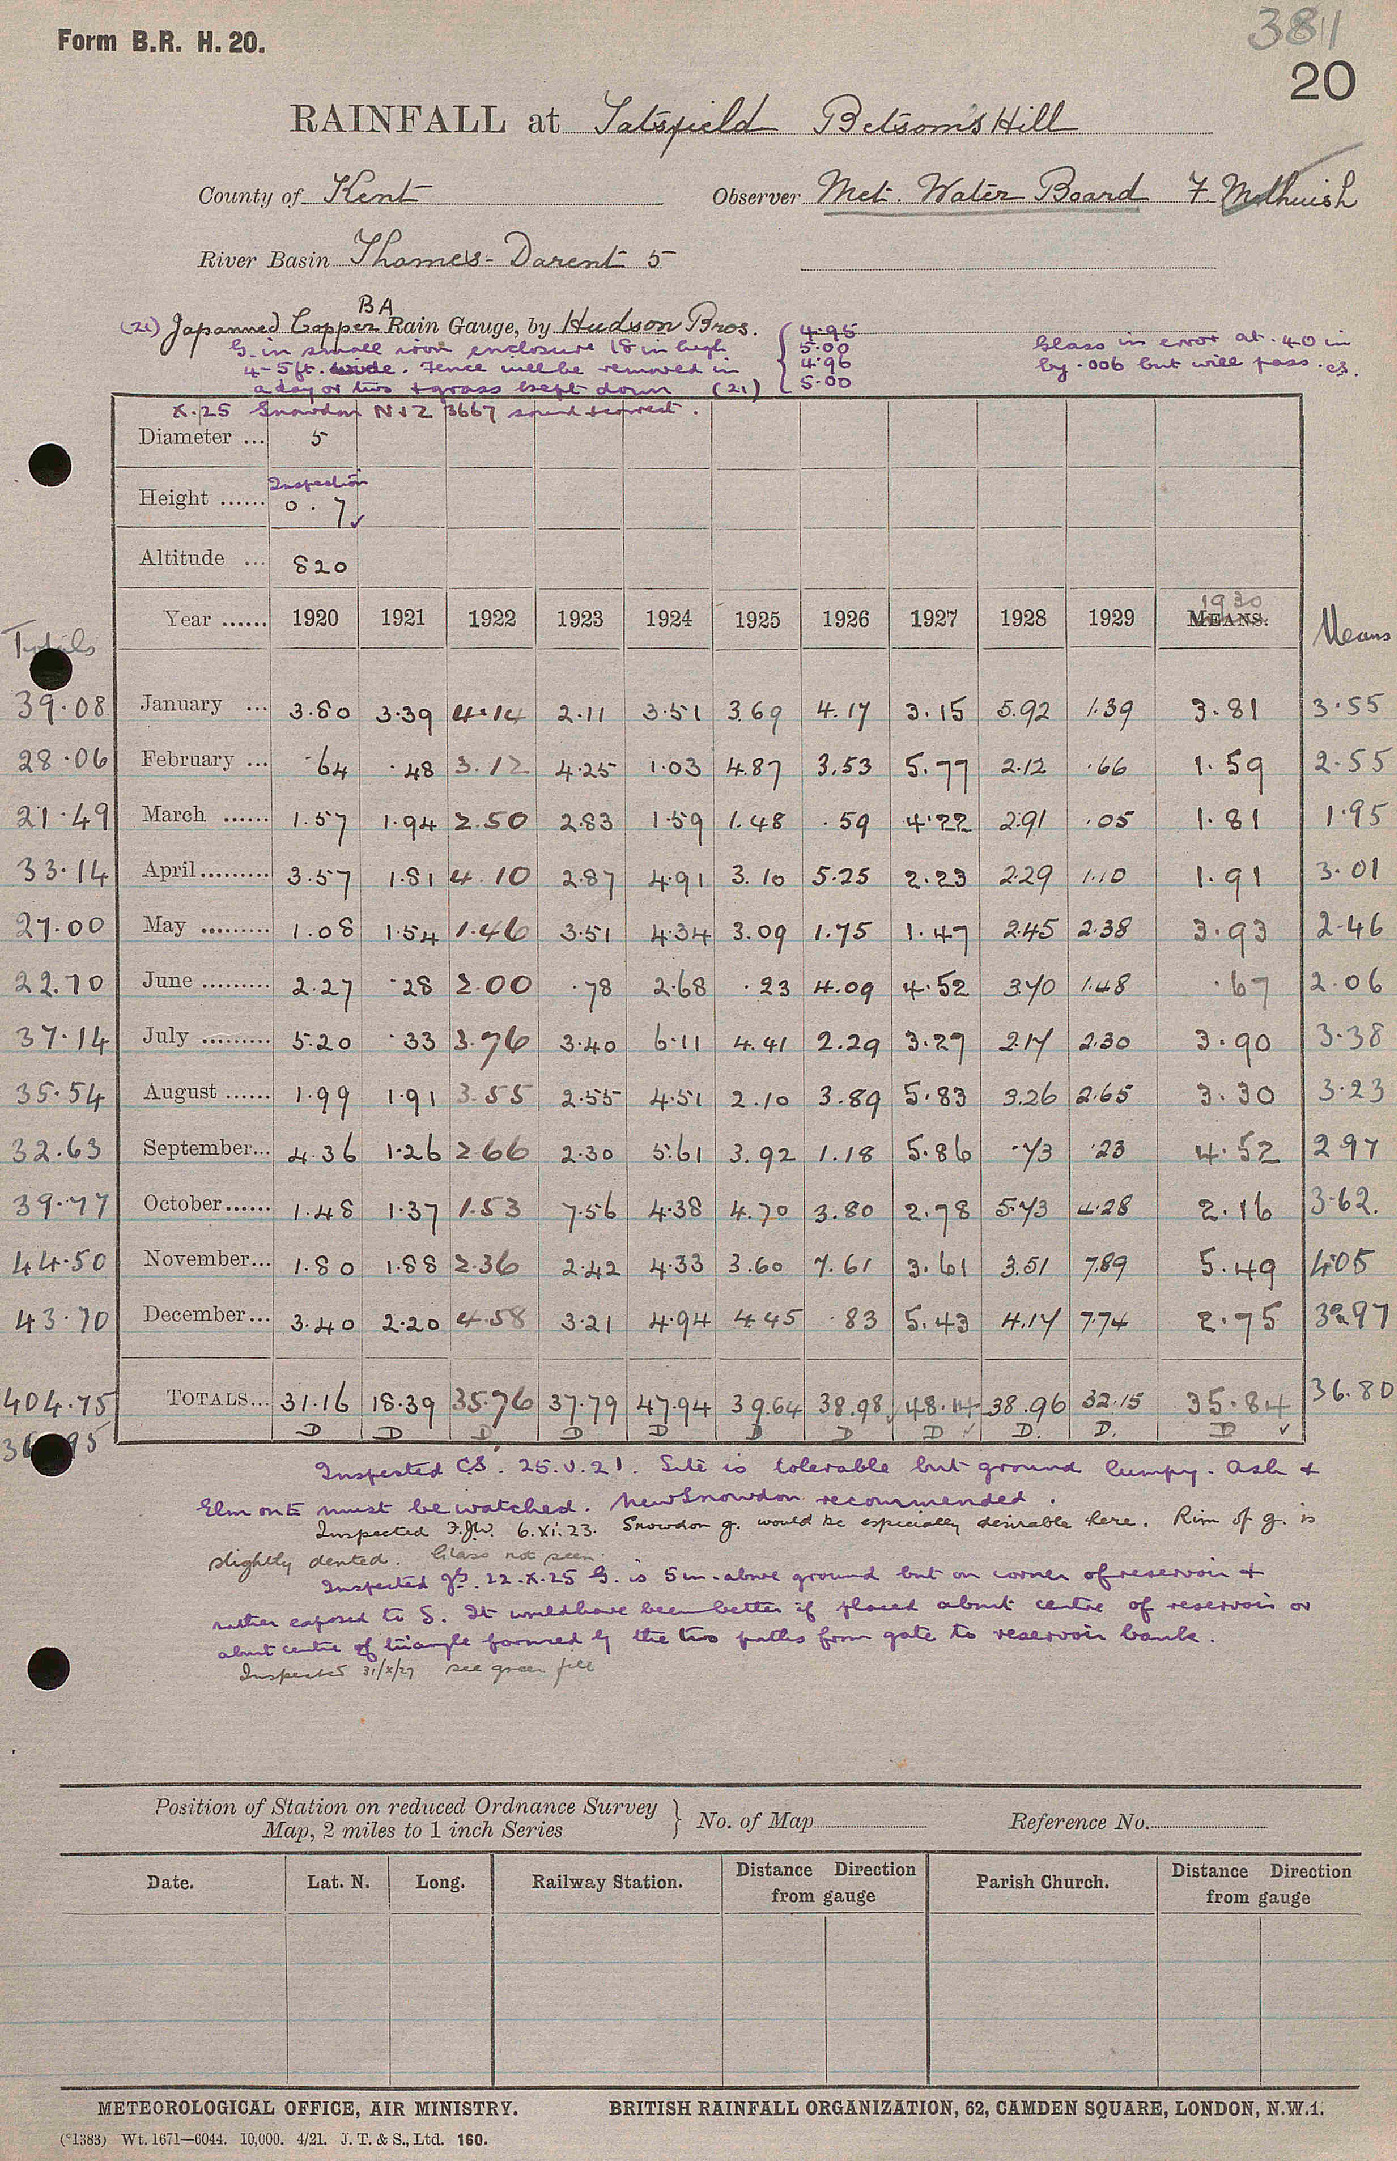 Form B.R. H. 20.
3811
20
RAINFALL at Tatsfield Betsom's Hill
County of Kent Observer Met. Water Board F Melhuish
River Basin Thames - Darent 5
BA
(21) Japanned Copper Rain Gauge, by Hudson Bros.
G. in small iron enclosure 18 in high
4-5 ft. wide. Fence will be removed in
a day or two & grass kept down (21)
4.95
5.00
4.96
5.00
Glass in error at .40 in
by .006 but will pass. CS.
X.25 Snowdon N&Z 3667 sound & correct.
Diameter ... 5
Inspection
Height ...... 0. 7 ✓
Altitude ... 820
1930
Totals Year ...... 1920 1921 1922 1923 1924 1925 1926 1927 1928 1929 MEANS. Means
39.08 January ... 3.80 3.39 4.14 2.11 3.51 3.69 4.17 3.15 5.92 1.39 3.81 3.55
28.06 February ... .64 .48 3.12 4.25 1.03 4.87 3.53 5.77 2.12 .66 1.59 2.55
21.49 March ...... 1.57 1.94 2.50 2.83 1.59 1.48 .59 4.22 2.91 .05 1.81 1.95
33.14 April ......... 3.57 1.81 4.10 2.87 4.91 3.10 5.25 2.23 2.29 1.10 1.91 3.01
27.00 May ......... 1.08 1.54 1.46 3.51 4.34 3.09 1.75 1.47 2.45 2.38 3.93 2.46
22.70 June ......... 2.27 .28 2.00 .78 2.68 .23 4.09 4.52 3.70 1.48 .67 2.06
37.14 July ......... 5.20 .33 3.76 3.40 6.11 4.41 2.29 3.27 2.17 2.30 3.90 3.38
35.54 August ...... 1.99 1.91 3.55 2.55 4.51 2.10 3.89 5.83 3.26 2.65 3.30 3.23
32.63 September... 4.36 1.26 2.66 2.30 5.61 3.92 1.18 5.86 .73 .23 4.52 2.97
39.77 October ...... 1.48 1.37 1.53 7.56 4.38 4.70 3.80 2.78 5.73 4.28 2.16 3.62.
44.50 November... 1.80 1.88 2.36 2.42 4.33 3.60 7.61 3.61 3.51 7.89 5.49 4.05
43.70 December... 3.40 2.20 4.58 3.21 4.94 4.45 .83 5.43 4.17 7.74 2.75 3.97
404.75 TOTALS... 31.16 18.39 35.76 37.79 47.94 39.64 38.98 48.14 38.96 32.15 35.84 36.80
D D D D D D D D ✓ D. D. D ✓
Inspected C.S. 25.V.21. Site is tolerable but ground lumpy. Ash &
Elm on E must be watched. New Snowdon recommended.
Inspected 6.XI.23. Snowdon g. would be especially desirable here. Rim of g. is
slightly dented. Glass not seen.
Inspected 22.X.25 G. is 5 in. above ground but on corner of reservoir &
rather exposed to S. It would have been better if placed about centre of reservoir or
about centre of triangle formed by the two paths from gate to reservoir bank.
Inspected 31/X/27 see green file
Position of Station on reduced Ordnance Survey
Map, 2 miles to 1 inch Series } No. of Map Reference No.
Date. Lat. N. Long. Railway Station. Distance Direction from gauge Parish Church. Distance Direction from gauge
METEOROLOGICAL OFFICE, AIR MINISTRY. BRITISH RAINFALL ORGANIZATION, 62, CAMDEN SQUARE, LONDON, N.W.1.
(*1383) Wt. 1671—6044. 10,000. 4/21. J. T. & S., Ltd. 160.